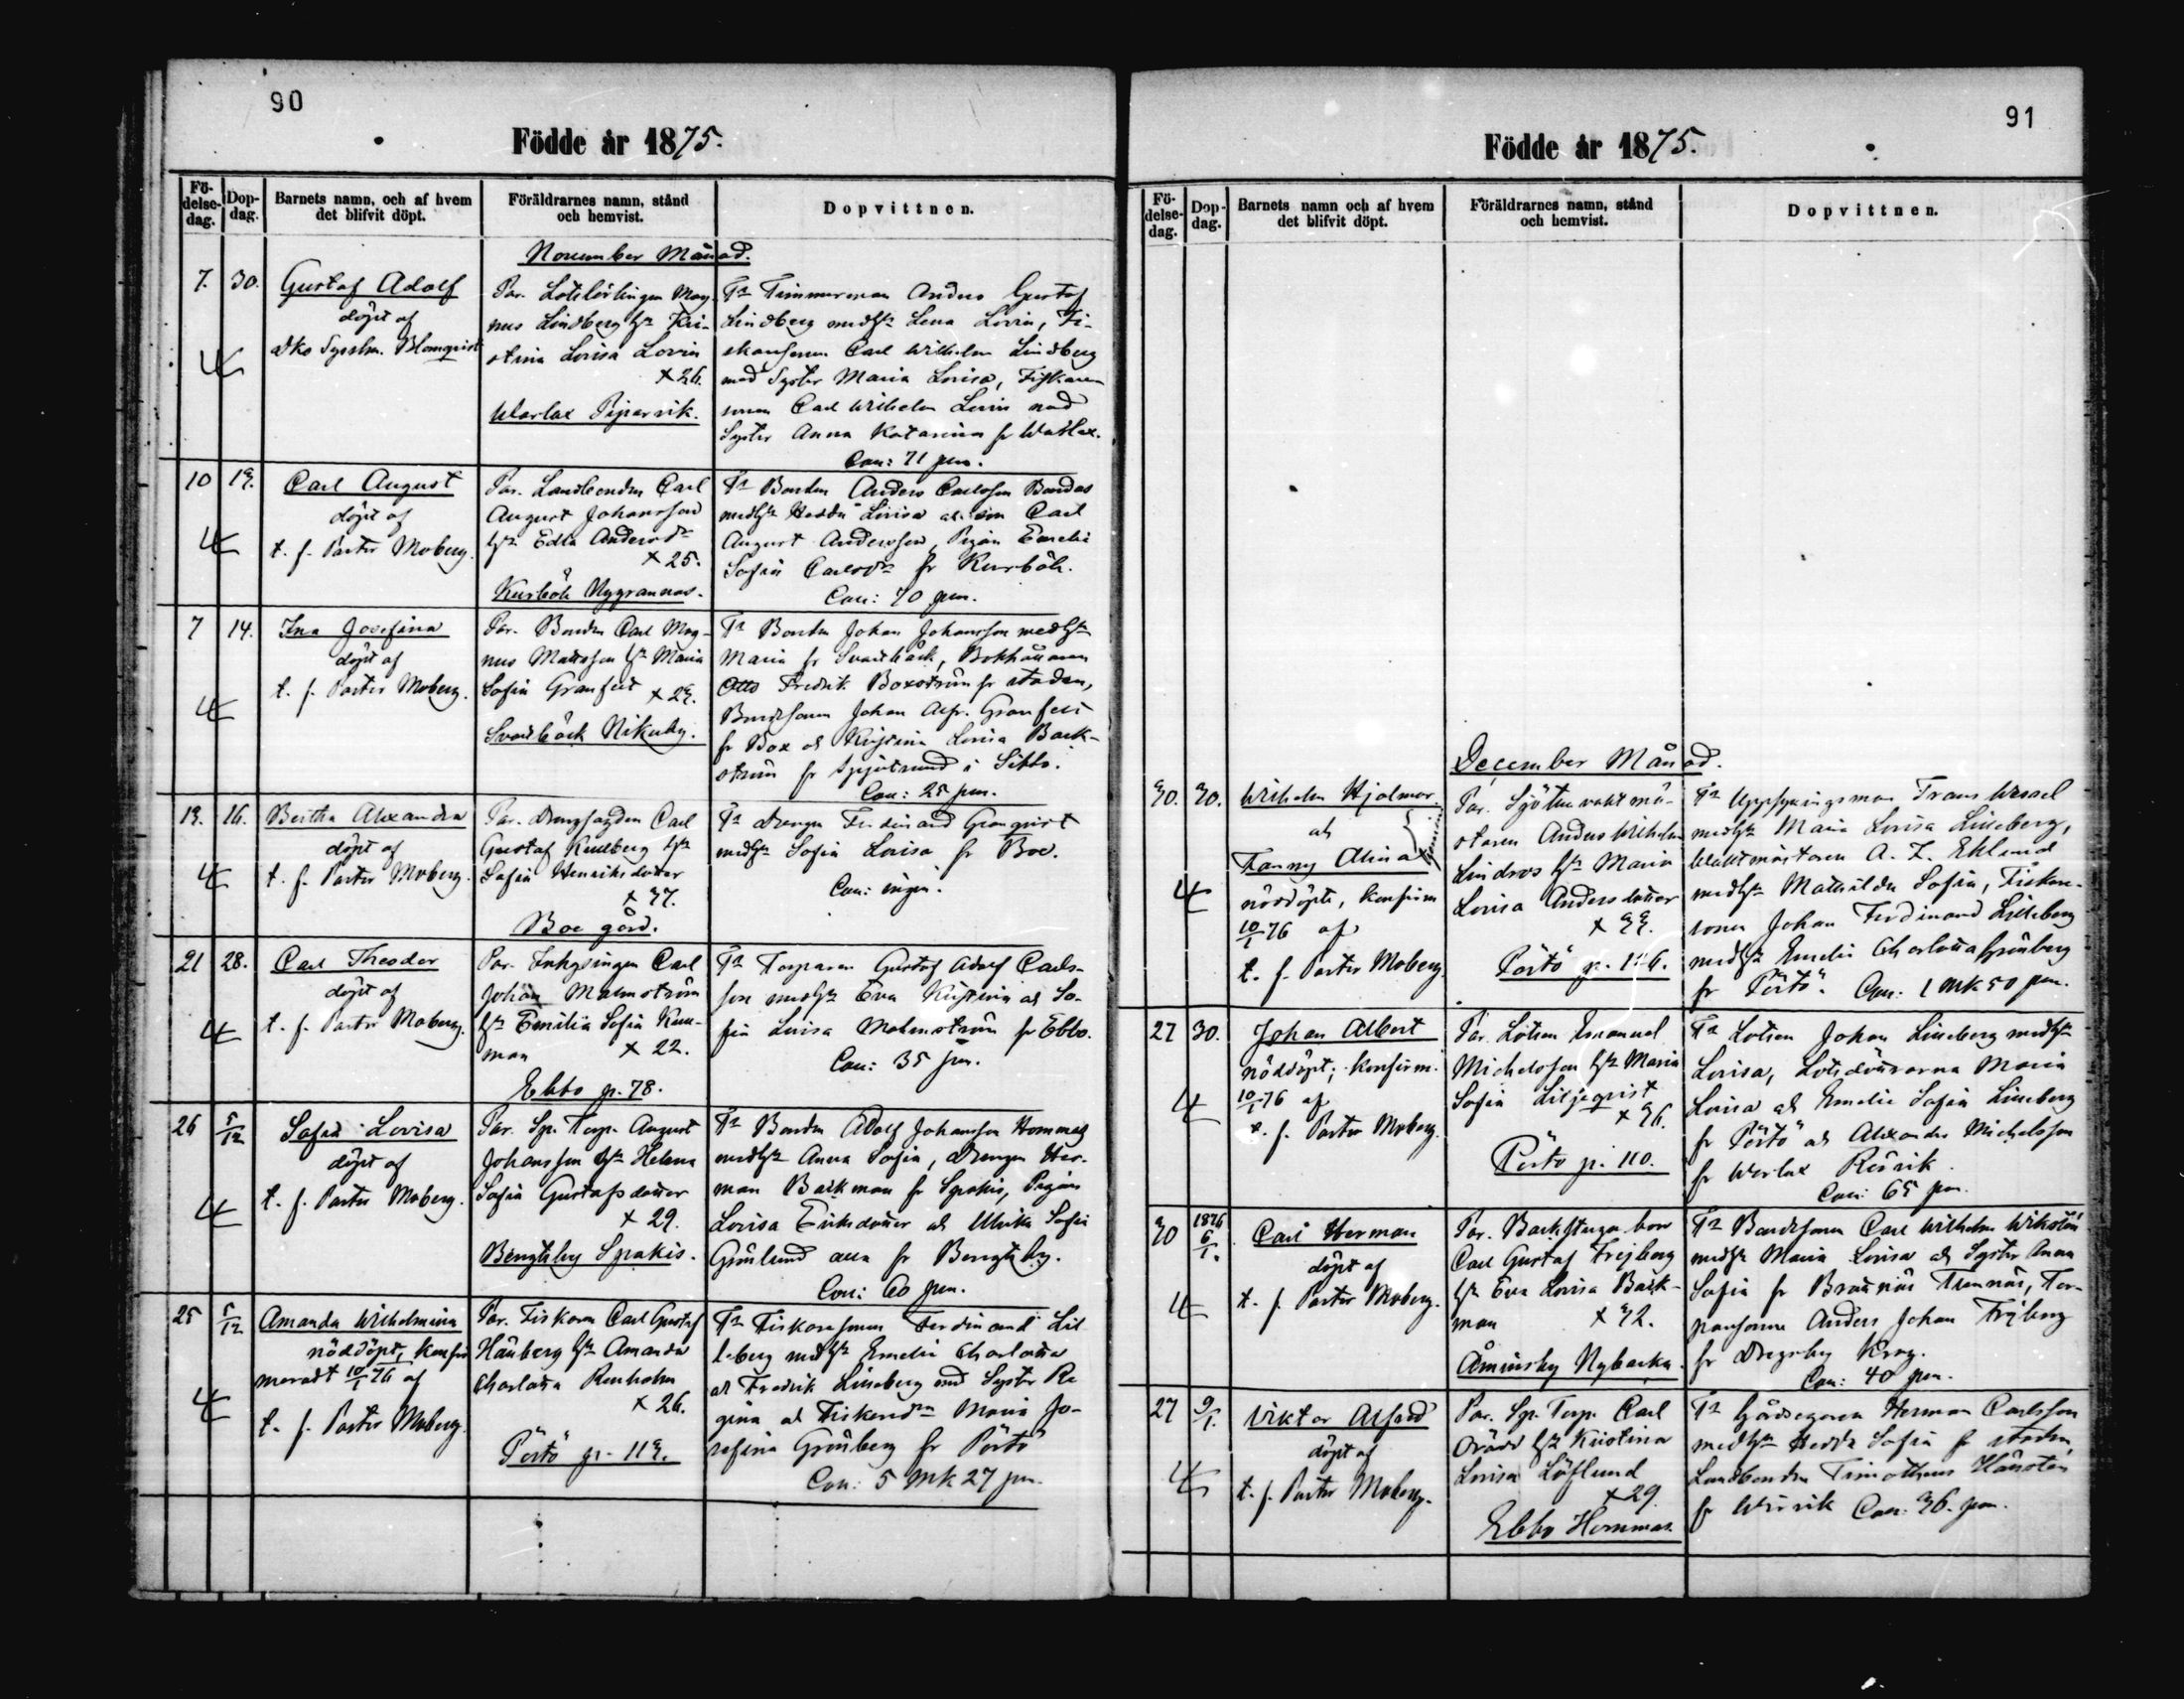 90
Födde år 1875.
Fö-
delse-
dag.
Dop-
dag.
Barnets namn, och af hvem
det blifvit döpt.
Föräldrarnes namn, stånd
och hemvist.
Dopvittnen.
November Månad.
7. 30.
Gustaf Adolf
döpt af
Blomqvist
Par. Lotslärlingen Mag-
nus Lindberg h. Kri-
stina Lovisa Lovin
x 26.
Warlax Piparvik.
Timmerman Anders Gustaf
Lindberg med h. Lena Lovin, Fi-
skarsonen Carl Wilhelm Lindberg
med Syster Maria Lovisa, Fiskare-
sonen Carl Wilhelm Lovin med
Syster Anna Katarina fr Warlax.
Con: 71 pen.
10 13.
Carl August
döpt af
t. f. Pastor Moberg.
Par. Landbonden Carl
August Johansson
h. Edla Andersd.
x 25.
Kurböle Nygrannas.
Bonden Anders Carlsson Bondas
med h. Hedda Lovisa
Carl
August Andersson, Pigan Emelie
Sofia Carlsd. fr Kurböle.
Con: 70 pen.
7 14.
Ina Josefina
döpt af
t. f. Pastor Moberg.
Par. Bonden Carl Mag-
nus Mattsson h. Maria
Sofia Granfelt x 23.
Svartbäck Nikuby.
Bonden Johan Johansson med h.
Maria fr Svartbäck, Bokhållaren
Otto Fredrik Boxström fr staden,
Bondsonen Johan Alfr. Granfelt
fr Box och Kristina Lovisa Back-
ström fr Spjutsund i Sibbo.
Con: 25 pen.
13. 16.
Bertha Alexandra
döpt af
t. f. Pastor Moberg.
Par. Carl
Gustaf Kullberg h.
Sofia Henriksdotter
x 37.
Boe gård.
Drengen Ferdinand Granqvist
med h. Sofia Lovisa fr Boe.
Con: ingen.
21 28.
Carl Theodor
döpt af
t. f. Pastor Moberg.
Par. Inhysingen Carl
Johan Malmström
h. Emilia Sofia Kull-
man x 22.
Ebbo p. 78.
Torparen Gustaf Adolf Carls-
son med h. Eva Kristina och So-
fia Lovisa Malmström fr Ebbo.
Con: 35 pen.
26 5/12
Sofia Lovisa
döpt af
t. f. Pastor Moberg.
Par. Sp. Torp. August
Johansson h. Helena
Sofia Gustafsdotter
x 29.
Bengtsby Spakis.
Bonden Adolf Johansson Hommas
med h. Anna Sofia, Drengen Her-
man Backman fr Spakis, Pigan
Lovisa Eriksdotter och Ulrika Sofia
Grönlund alla fr Bengtsby.
Con: 60 pen.
25 5/12
Amanda Wilhelmina
nöddöpt, konfir-
meradt 10/1 76 af
t. f. Pastor Moberg.
Par. Fiskaren Carl Gustaf
Hänberg h. Amanda
Charlotta Renholm
x 26.
Pörtö p. 113.
Fiskaresonen Ferdinand Lil
leberg med h. Emelie Charlotta
och Fredrik Lilleberg med Syster Re
gina och Fiskared. Maria Jo-
sefina Grönberg fr Pörtö
Con: 5 mk 27 pen.
91
Födde år 1875.
Fö-
delse-
dag.
Dop-
dag.
Barnets namn och af hvem
det blifvit döpt.
Föräldrarnes namn, stånd
och hemvist.
Dopvittnen.
December Månad.
30. 30.
Wilhelm Hjalmar
och
Fanny Alina
nöddöpte, konfirm
10/1 76 af
t. f. Pastor Moberg.
Par. Sjötullvaktmä-
staren Anders Wilhelm
Lindros h. Maria
Lovisa Andersdotter
x 33.
Pörtö p. 116.
Uppsyningsman Frans Wessel
med h. Maria Lovisa Lilleberg,
Waktmästaren A. Z. Eklund
med h. Mathilda Sofia, Fiskare-
sonen Johan Ferdinand Lilleberg
med h. Emelie Charlotta Grönberg
fr Pörtö. Con: 1 mk 50 pen.
27 30.
Johan Albert
nöddöpt; konfirm.
10/1 76 af
t. f. Pastor Moberg.
Par. Lotsen Emanuel
Michelsson h. Maria
Sofia Liljeqvist
x 36.
Pörtö p. 110.
Lotsen Johan Lilleberg med h.
Lovisa, Lotsdöttrarna Maria
Lovisa och Emelie Sofia Lilleberg
fr Pörtö och Alexander Michelsson
fr Werlax Resvik.
Con: 65 pen.
30 1876 6/1.
Carl Herman
döpt af
t. f. Pastor Moberg.
Par. Backstuga bon
Carl Gustaf Frejberg
h. Eva Lovisa Back-
man x 32.
Åminsby Nybacka.
Bondsonen Carl Wilhelm Wikstén
med h. Maria Lovisa och Syster Anna
Sofia fr Brattnäs Tunnäs, Tor-
paresonen Anders Johan Frejberg
fr Dregsby Krog.
Con: 40 pen.
27 9/1.
Viktor Alfred
döpt af
t. f. Pastor Moberg.
Par. Sp. Torp. Carl
Orädd h. Kristina
Lovisa Löflund
x 29.
Ebbo Hommas.
Gårdsegaren Herman Carlsson
med h. Hedda Sofia fr staden,
Landbonden Timotheus
fr Wirvik Con. 36. pen.